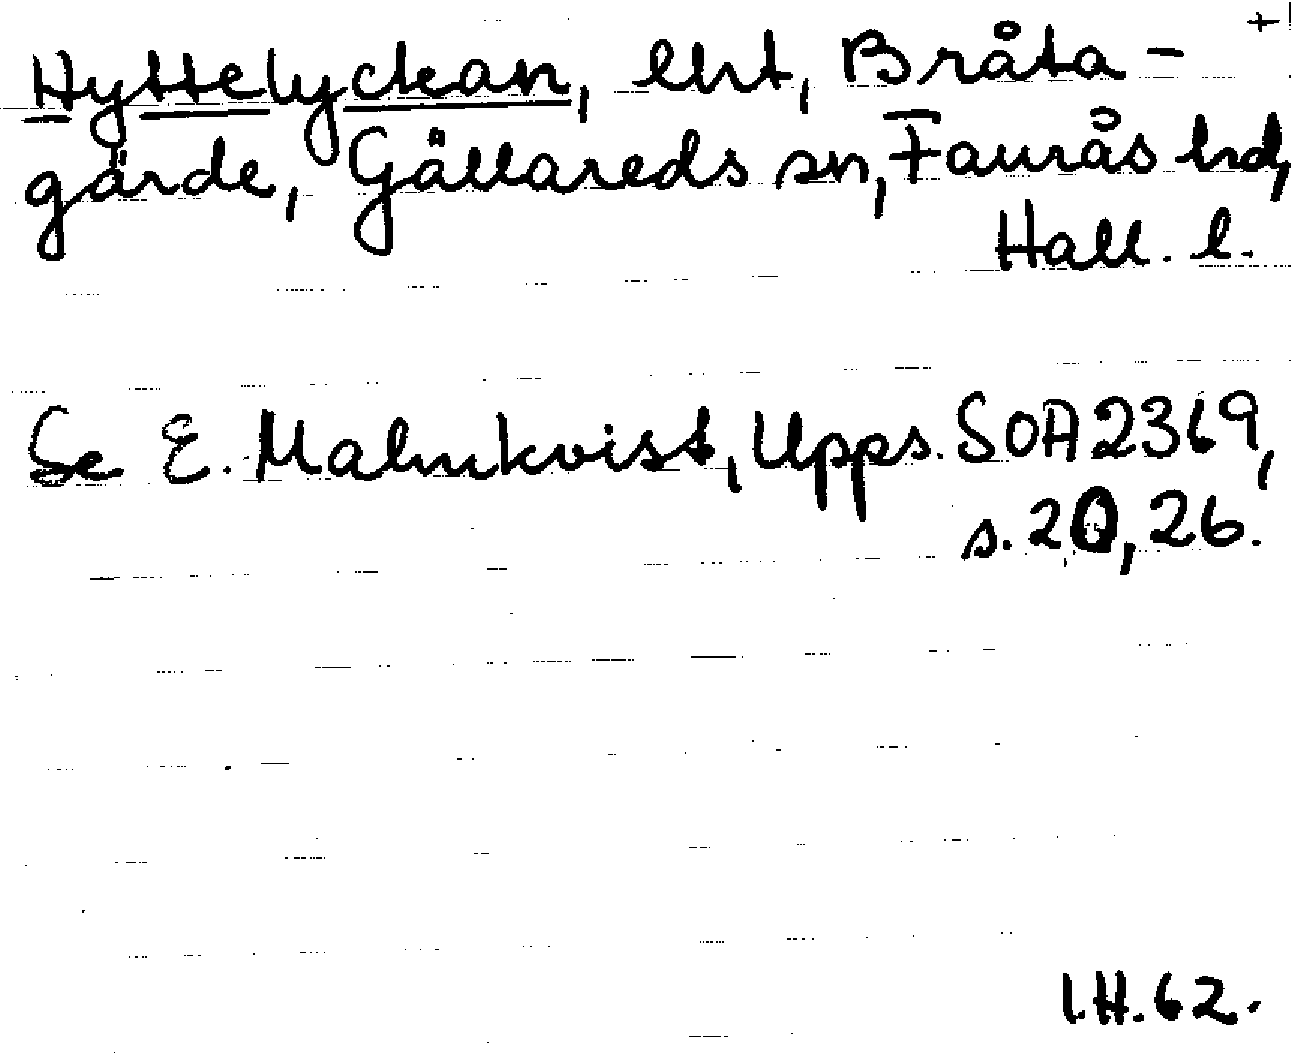 +
Hyttelyckan, lht, Bråta-
gärde, Gällareds sn, Faurås hd,
Hall. l.
Se E. Malmkvist, Upps. SOA 2369,
s. 20, 26.
I.H. 62.